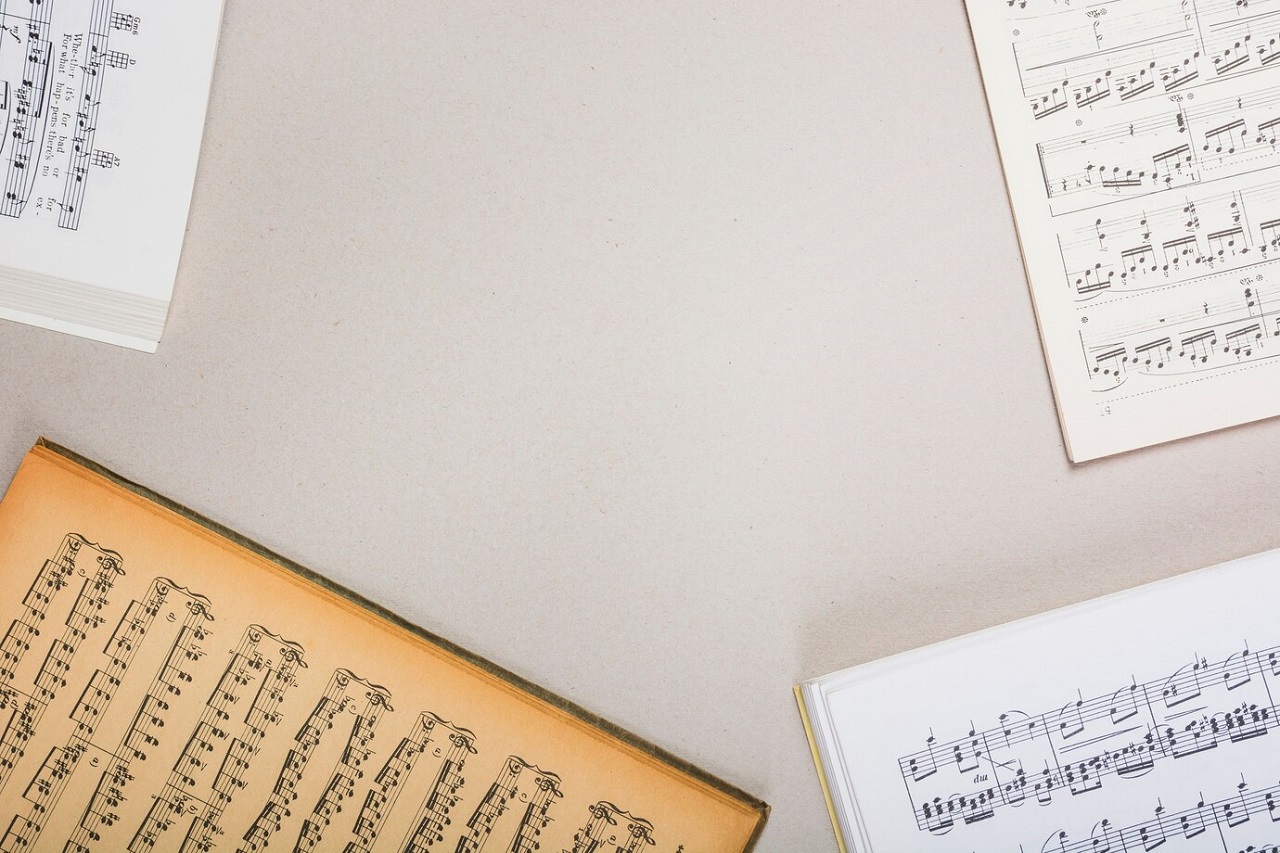 Gm6 D A7
Whe-ther it's for bad or for
For what hap-pens there's no ex-
mf